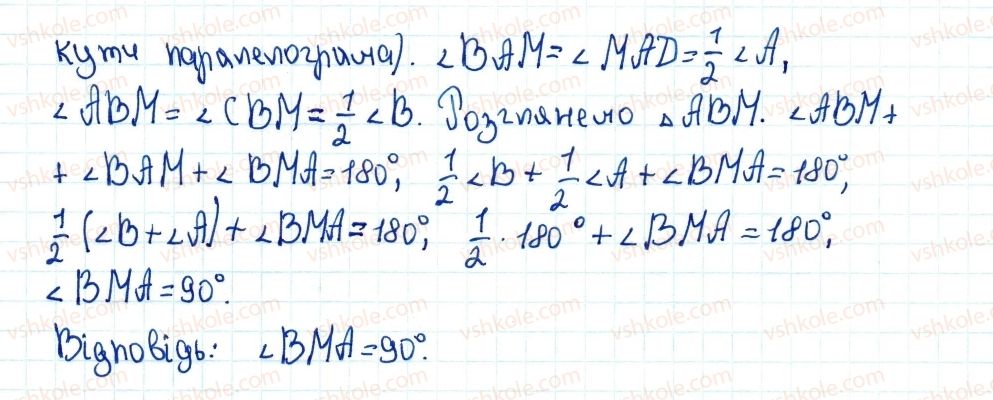 кути паралелограма). ∠BAM = ∠MAD = 1/2 ∠A,
∠ABM = ∠CBM = 1/2 ∠B. Розглянемо △ABM. ∠ABM +
+ ∠BAM + ∠BMA = 180°, 1/2 ∠B + 1/2 ∠A + ∠BMA = 180°,
1/2 (∠B + ∠A) + ∠BMA = 180°, 1/2 · 180° + ∠BMA = 180°,
∠BMA = 90°.
Відповідь: ∠BMA = 90°.